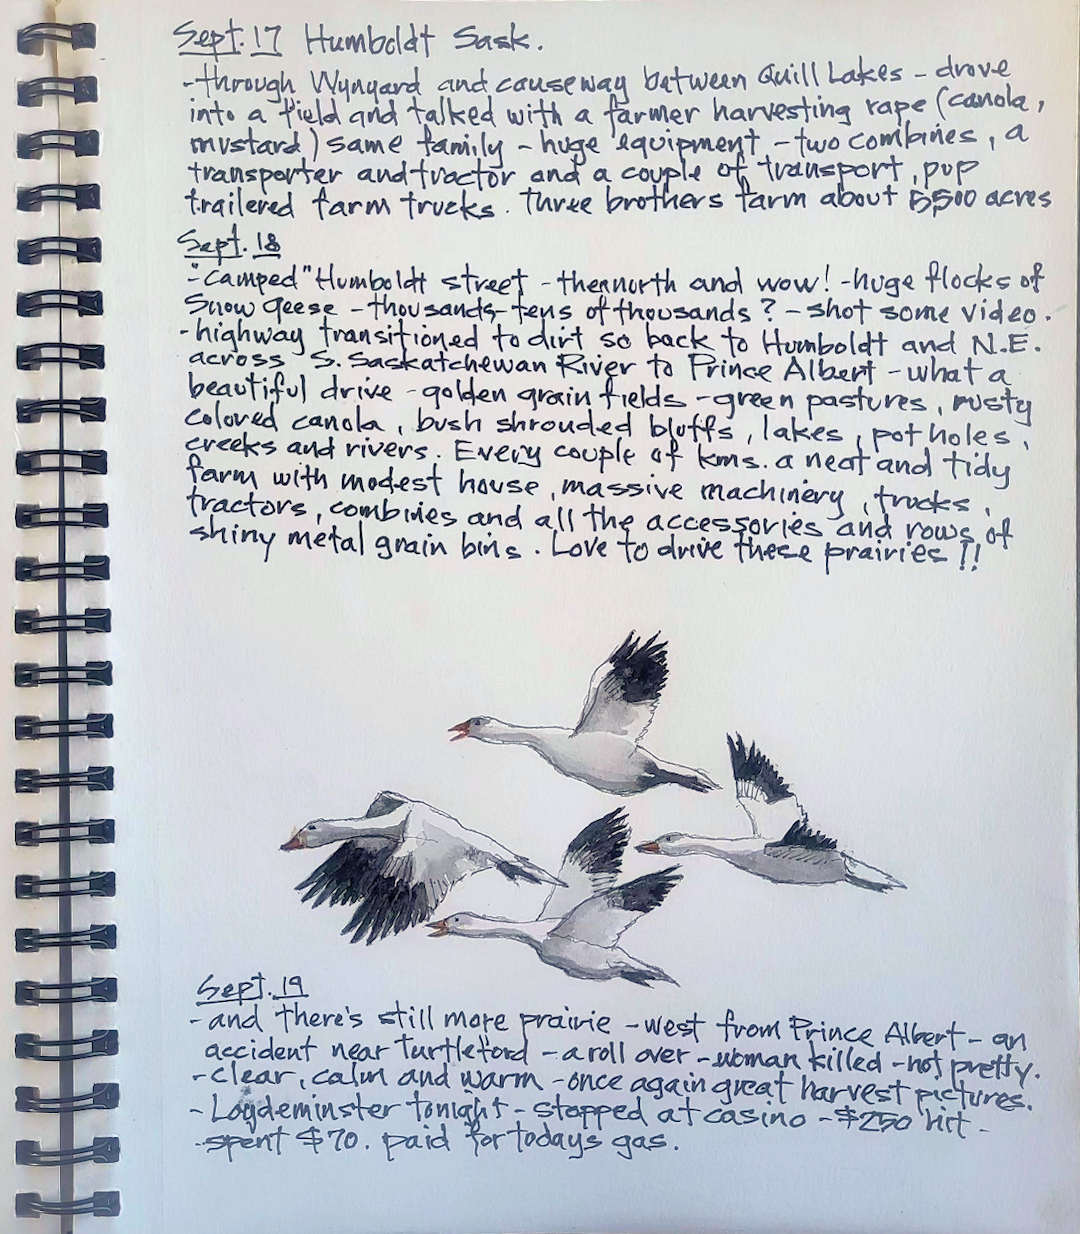 Sept. 17 Humboldt Sask.
-through Wynyard and causeway between Quill Lakes - drove
into a field and talked with a farmer harvesting rape (canola,
mustard) same family - huge equipment - two combines, a
transporter and tractor and a couple of transport, pup
trailered farm trucks. Three brothers farm about 5,500 acres
Sept. 18
-"camped" Humboldt street - then north and wow! - huge flocks of
Snow geese - thousands, tens of thousands? - shot some video.
- highway transitioned to dirt so back to Humboldt and N.E.
across S. Saskatchewan River to Prince Albert - what a
beautiful drive - golden grain fields - green pastures, rusty
colored canola, bush shrouded bluffs, lakes, pot holes,
creeks and rivers. Every couple of kms. a neat and tidy
farm with modest house, massive machinery, trucks,
tractors, combines and all the accessories and rows of
shiny metal grain bins. Love to drive these prairies!!
Sept. 19
- and there's still more prairie - west from Prince Albert - an
accident near Turtleford - a roll over - woman killed - not pretty.
- clear, calm and warm - once again great harvest pictures.
- Loydeminster tonight - stopped at casino - $250 hit -
- spent $70. paid for todays gas.